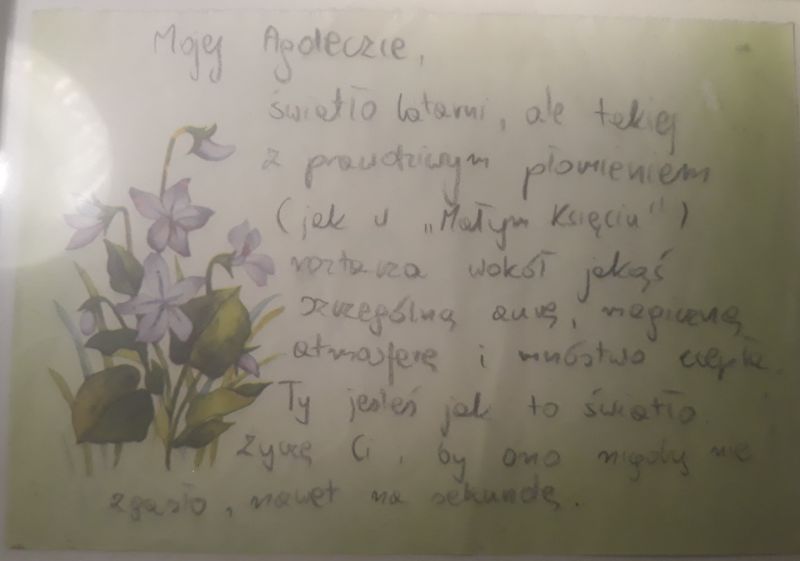 Mojej Agdeczce,
światło latarni, ale takiej
z prawdziwym płomieniem
(jak w „Małym Księciu")
roztacza wokół jakąś
szczególną aurę, magiczną
atmosferę i mnóstwo ciepła.
Ty jesteś jak to światło.
Życzę Ci, by ono nigdy nie
zgasło, nawet na sekundę.